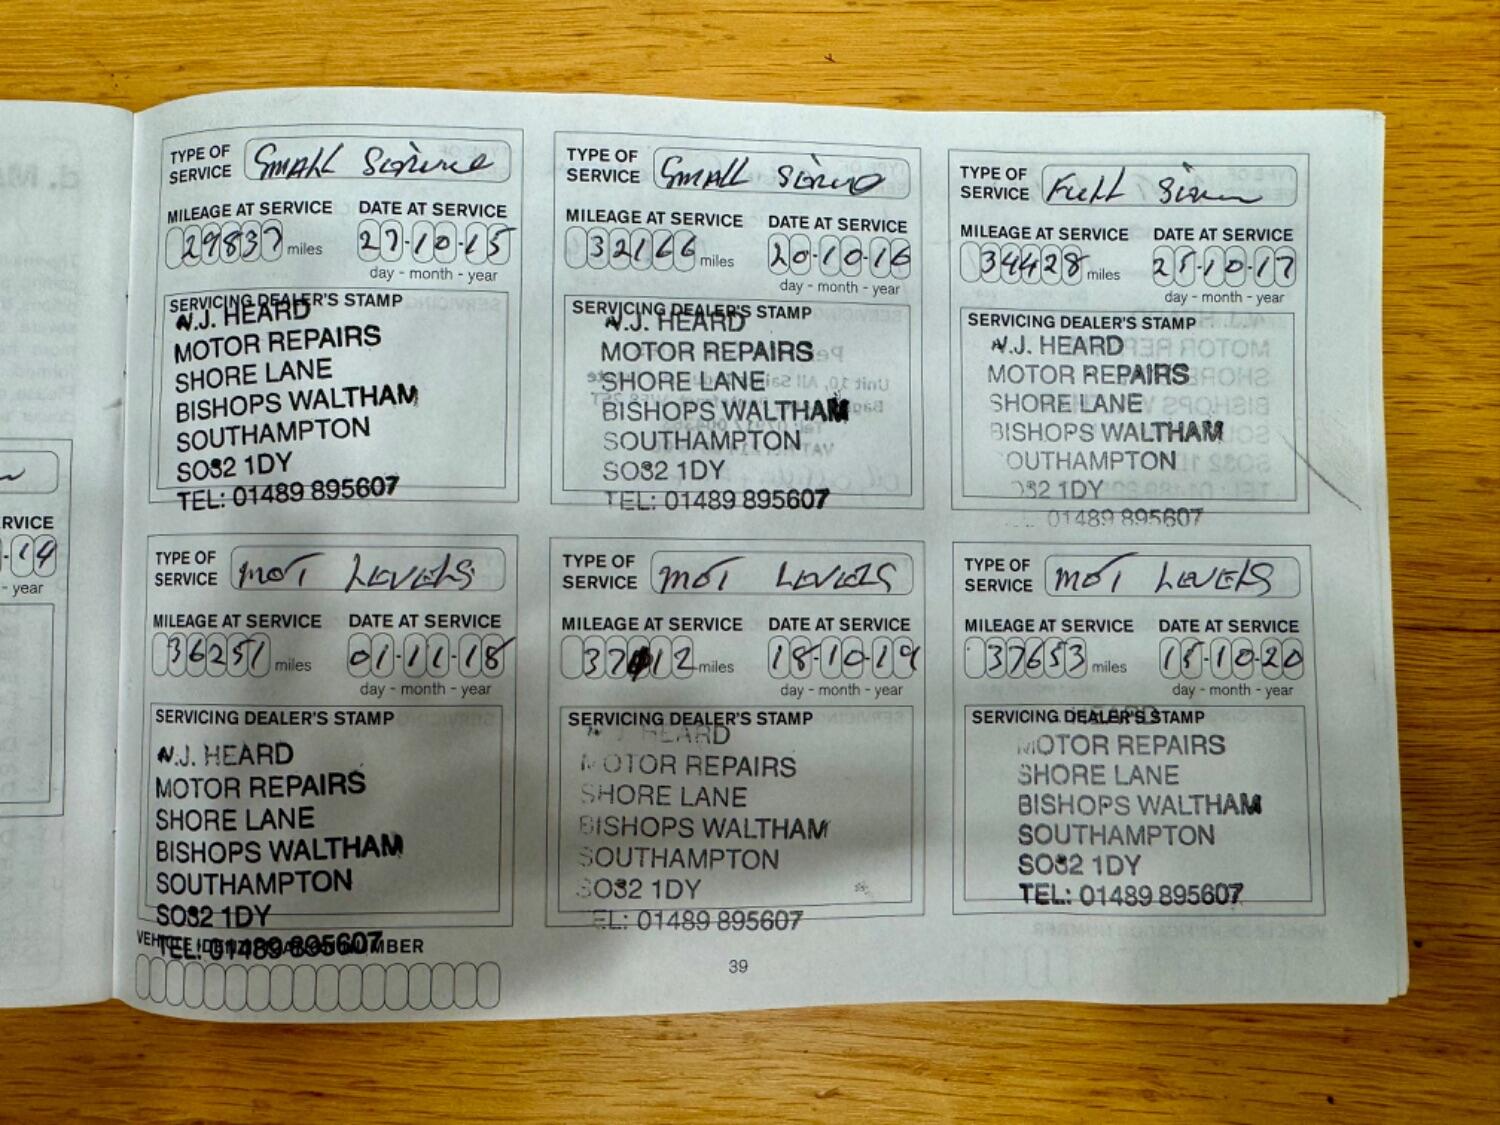 RVICE
-14
- year
TYPE OF SERVICE Small Service
MILEAGE AT SERVICE DATE AT SERVICE
29837 miles 27-10-15
day - month - year
SERVICING DEALER'S STAMP
N.J. HEARD
MOTOR REPAIRS
SHORE LANE
BISHOPS WALTHAM
SOUTHAMPTON
SO32 1DY
TEL: 01489 895607
TYPE OF SERVICE Small Service
MILEAGE AT SERVICE DATE AT SERVICE
32166 miles 20-10-16
day - month - year
SERVICING DEALER'S STAMP
N.J. HEARD
MOTOR REPAIRS
SHORE LANE
BISHOPS WALTHAM
SOUTHAMPTON
SO32 1DY
TEL: 01489 895607
TYPE OF SERVICE Full
MILEAGE AT SERVICE DATE AT SERVICE
34428 miles 25-10-17
day - month - year
SERVICING DEALER'S STAMP
N.J. HEARD
MOTOR REPAIRS
SHORE LANE
BISHOPS WALTHAM
OUTHAMPTON
32 1DY
01489 895607
TYPE OF SERVICE MOT LEVELS
MILEAGE AT SERVICE DATE AT SERVICE
36251 miles 01-11-18
day - month - year
SERVICING DEALER'S STAMP
N.J. HEARD
MOTOR REPAIRS
SHORE LANE
BISHOPS WALTHAM
SOUTHAMPTON
SO32 1DY
TEL: 01489 895607
VEHICLE IDENTIFICATION NUMBER
TYPE OF SERVICE MOT LEVELS
MILEAGE AT SERVICE DATE AT SERVICE
37012 miles 18-10-19
day - month - year
SERVICING DEALER'S STAMP
N.J. HEARD
MOTOR REPAIRS
SHORE LANE
BISHOPS WALTHAM
SOUTHAMPTON
SO32 1DY
EL: 01489 895607
TYPE OF SERVICE MOT LEVELS
MILEAGE AT SERVICE DATE AT SERVICE
37653 miles 15-10-20
day - month - year
SERVICING DEALER'S STAMP
HEARD
MOTOR REPAIRS
SHORE LANE
BISHOPS WALTHAM
SOUTHAMPTON
SO32 1DY
TEL: 01489 895607
39